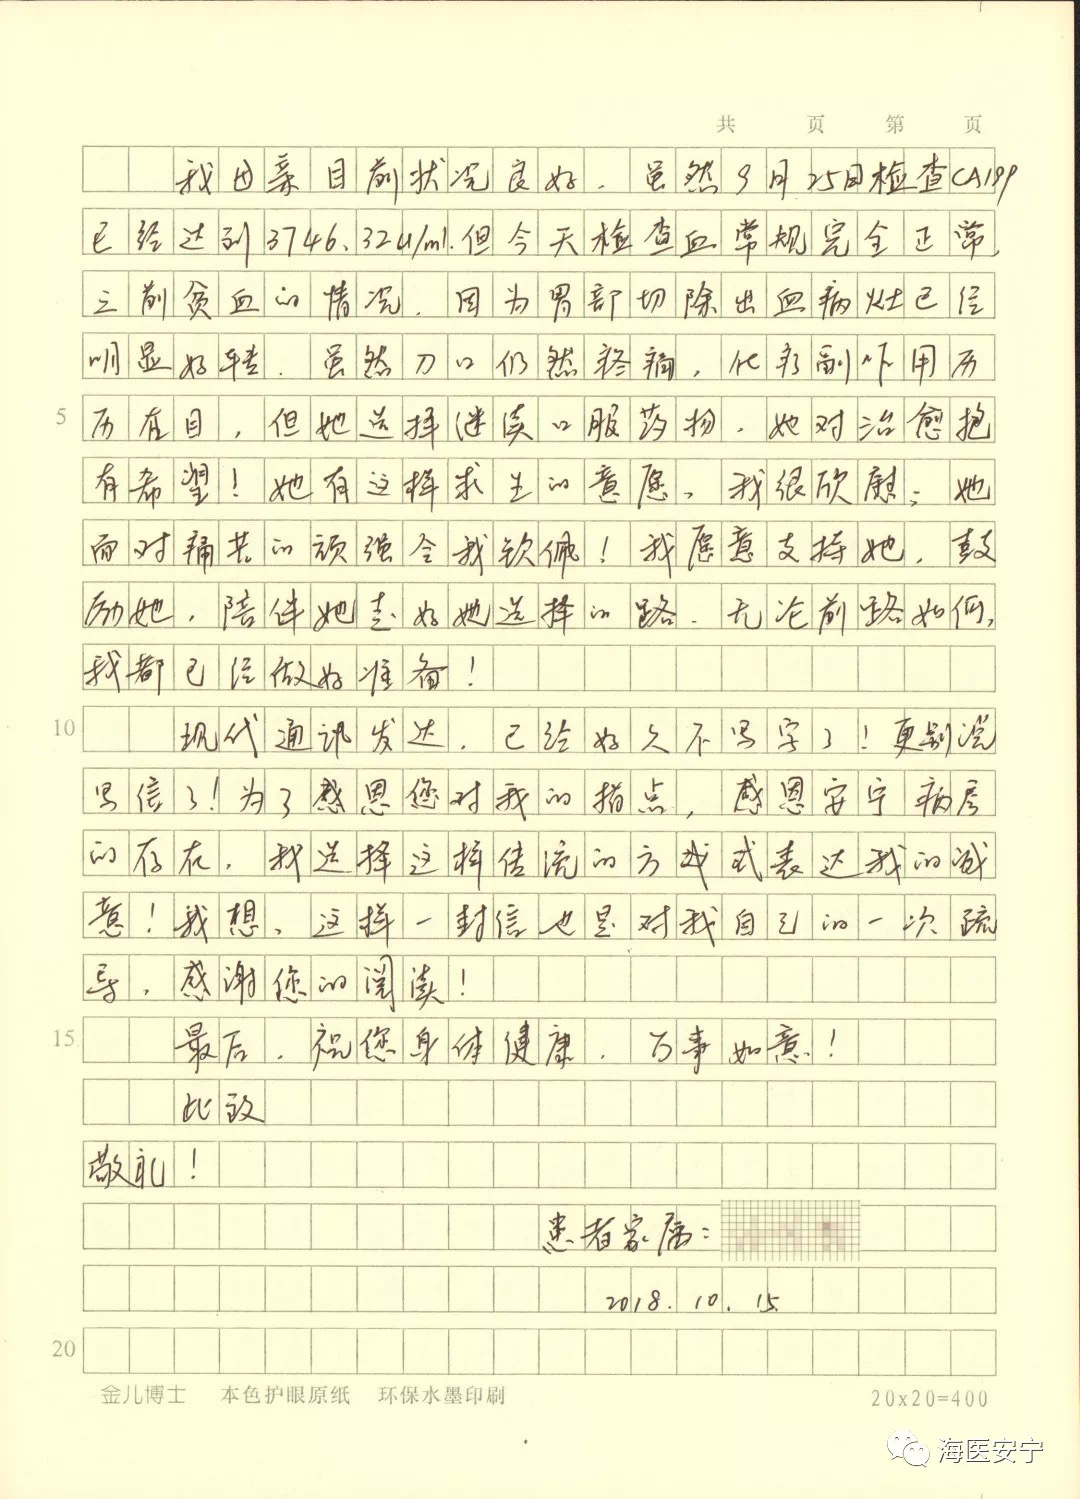 共 页 第 页
我母亲目前状况良好，虽然9月25日检查CA199
已经达到3746.32u/ml.但今天检查血常规完全正常，
之前贫血的情况，因为胃部切除出血病灶已经
明显好转。虽然刀口仍然疼痛，化疗副作用历
5 历在目，但她选择继续口服药物，她对治愈抱
有希望！她有这样求生的意愿，我很欣慰；她
面对痛苦的顽强令我钦佩！我愿意支持她，鼓
励她，陪伴她走好她选择的路。无论前路如何，
我都已经做好准备！
10 现代通讯发达，已经好久不写字了！更别说
写信了！为了感恩您对我的指点，感恩安宁病房
的存在，我选择这样传统的方式表达我的诚
意！我想，这样一封信也是对我自己的一次疏
导，感谢您的阅读！
15 最后，祝您身体健康，万事如意！
此致
敬礼！
患者家属：
2018.10.15
20
金儿博士 本色护眼原纸 环保水墨印刷 20x20=400
海医安宁